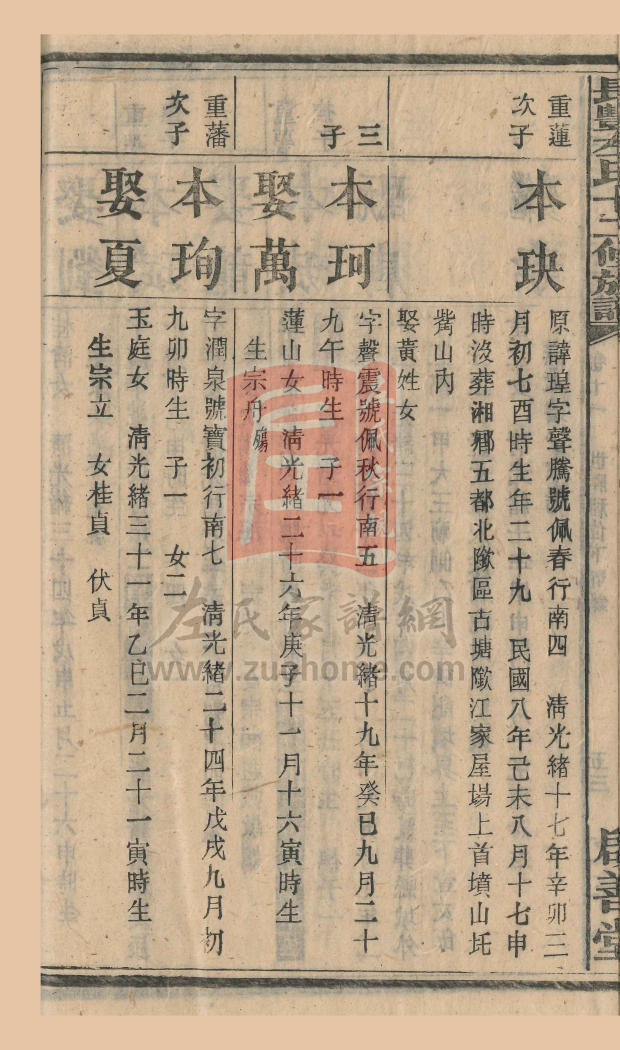 長豐左氏十二修族譜
啟善堂
重蓮
次子
本玦
原諱瑝字聲騰號佩春行南四 清光緒十七年辛卯三
月初七酉時生年二十九 民國八年己未八月十七申
時沒葬湘鄉五都北隞區古塘隞江家屋場上首墳山圫
觜山內
娶黃姓女
三
子
本珂
娶萬
字聲震號佩秋行南五 清光緒十九年癸巳九月二十
九午時生 子一
蓮山女 清光緒二十六年庚子十一月十六寅時生
生宗舟 殤
重藩
次子
本珣
娶夏
字潤泉號寶初行南七 清光緒二十四年戊戌九月初
九卯時生 子一 女二
玉庭女 清光緒三十一年乙巳二月二十一寅時生
生宗立 女桂貞 伏貞
左氏家譜網
www.zuo-home.com